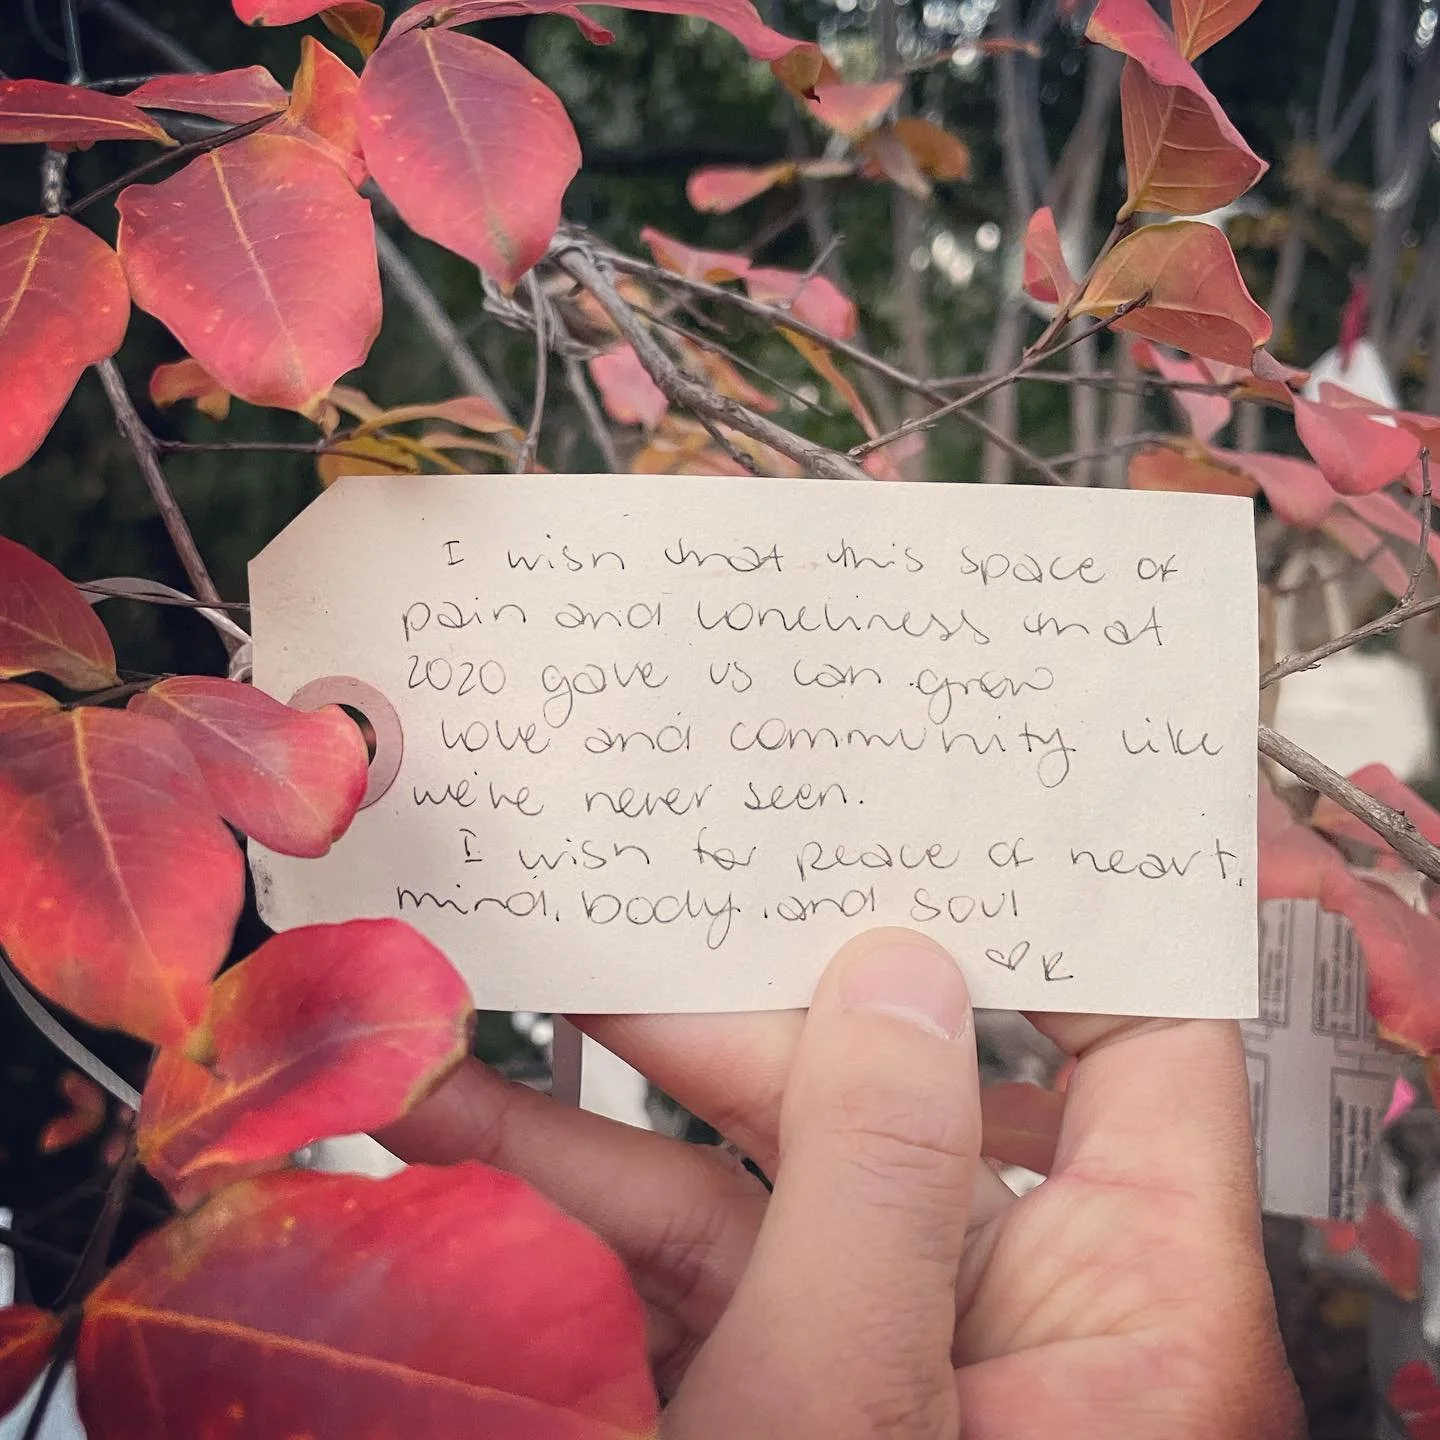 I wish that this space of
pain and loneliness that
2020 gave us can grow
love and community like
we've never seen.
I wish for peace of heart,
mind, body, and soul
♡ K